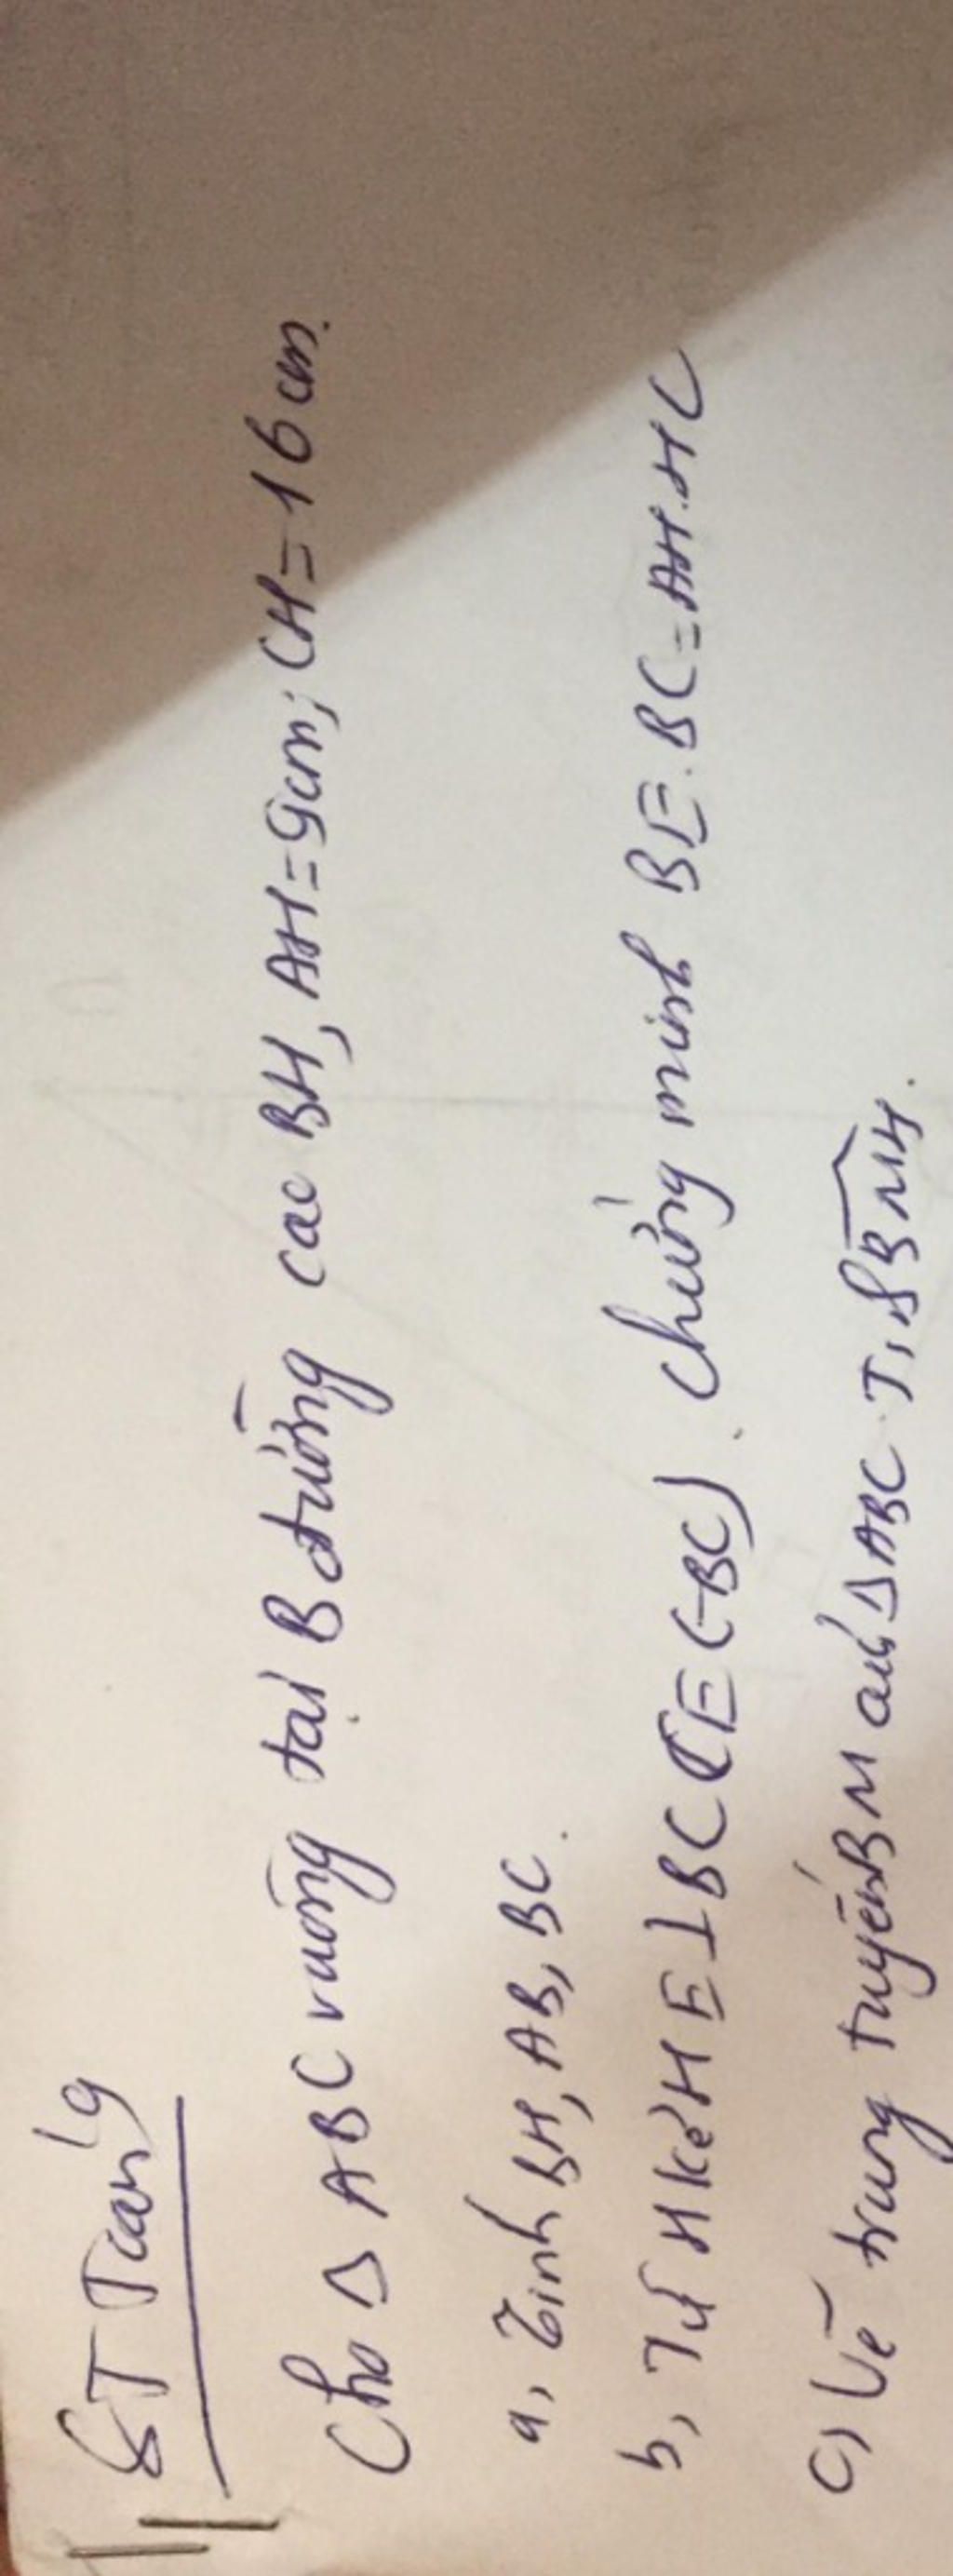 ĐT Toán 9
Cho Δ ABC vuông tại B đường cao BH, AH=9cm; CH=16cm.
a, Tính BH, AB, BC.
b, Từ H kẻ HE⊥BC (E∈BC). Chứng minh BE.BC=AH.HC
c, Vẽ trung tuyến BM của Δ ABC. T, BMH.